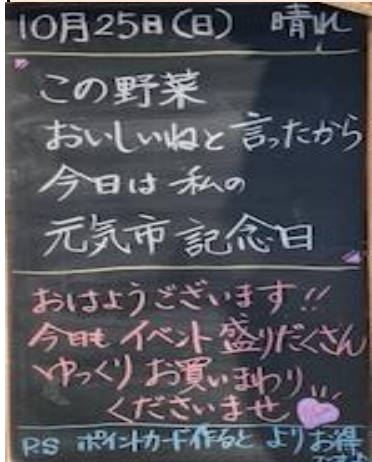 10月25日(日) 晴れ
この野菜
おいしいねと言ったから
今日は私の
元気市記念日
おはようございます!!
今日もイベント盛りだくさん
ゆっくりお買いまわり
くださいませ
P.S ポイントカード作るとよりお得
ですよ